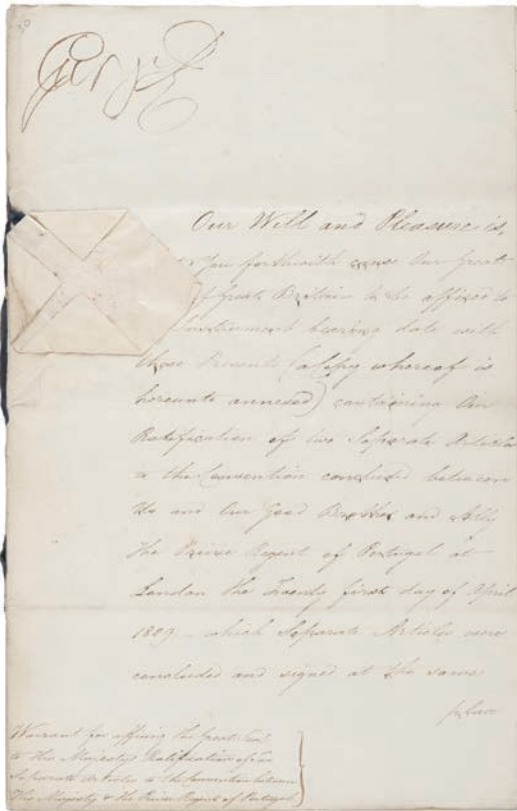 30
George R
Our Will and Pleasure is,
You forthwith cause Our Great
of Great Britain to be affixed to
Instrument bearing date with
these Presents (a Copy whereof is
hereunto annexed) containing Our
Ratification of two Separate Articles
to the Convention concluded between
Us and Our Good Brother and Ally
The Prince Regent of Portugal at
London the Twenty first day of April
1809 - which Separate Articles were
concluded and signed at the same
place
Warrant for affixing the Great Seal
to His Majesty's Ratification of two
Separate Articles to the Convention between
His Majesty & the Prince Regent of Portugal